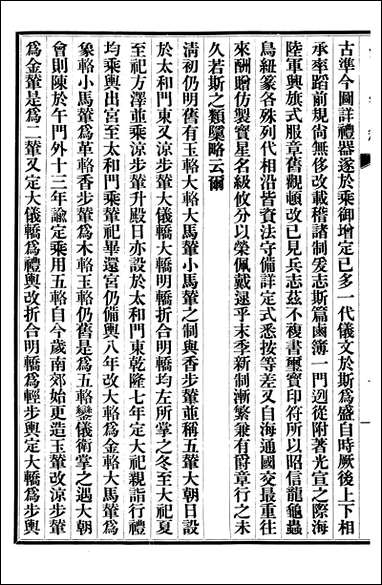 古準今圖詳禮器遂於乘御增定已多一代儀文於斯爲盛自時厥後上下相
承率蹈前規尙無侈改載稽諸制爰志斯篇鹵簿一門迥從附著光宣之際海
陸軍興旗式服章舊觀頓改已見兵志茲不複書璽寶印符所以昭信龍龜蟲
鳥紐篆各殊列代相沿皆資法守備詳定式悉按等差又自海通國交最重往
來酬贈仿製寶星名級攸分以榮佩戴逮乎末季新制漸繁兼有爵章行之未
久若斯之類槩略云爾
淸初仍明舊有玉輅大輅大馬輦小馬輦之制與香步輦竝稱五輦大朝日設
於太和門東又涼步輦大儀轎大轎明轎折合明轎均左所掌之冬至大祀夏
至祀方澤竝乘涼步輦升殿日亦設於太和門東乾隆七年定大祀親詣行禮
均乘輿出宮至太和門乘輦祀畢還宮仍備輿八年改大輅爲金輅大馬輦爲
象輅小馬輦爲革輅香步輦爲木輅玉輅仍舊是爲五輅鑾儀衛掌之遇大朝
會則陳於午門外十三年諭定乘用五輅自今歲南郊始更造玉輦改涼步輦
爲金輦是爲二輦又定大儀轎爲禮輿改折合明轎爲輕步輿定大轎爲步輿